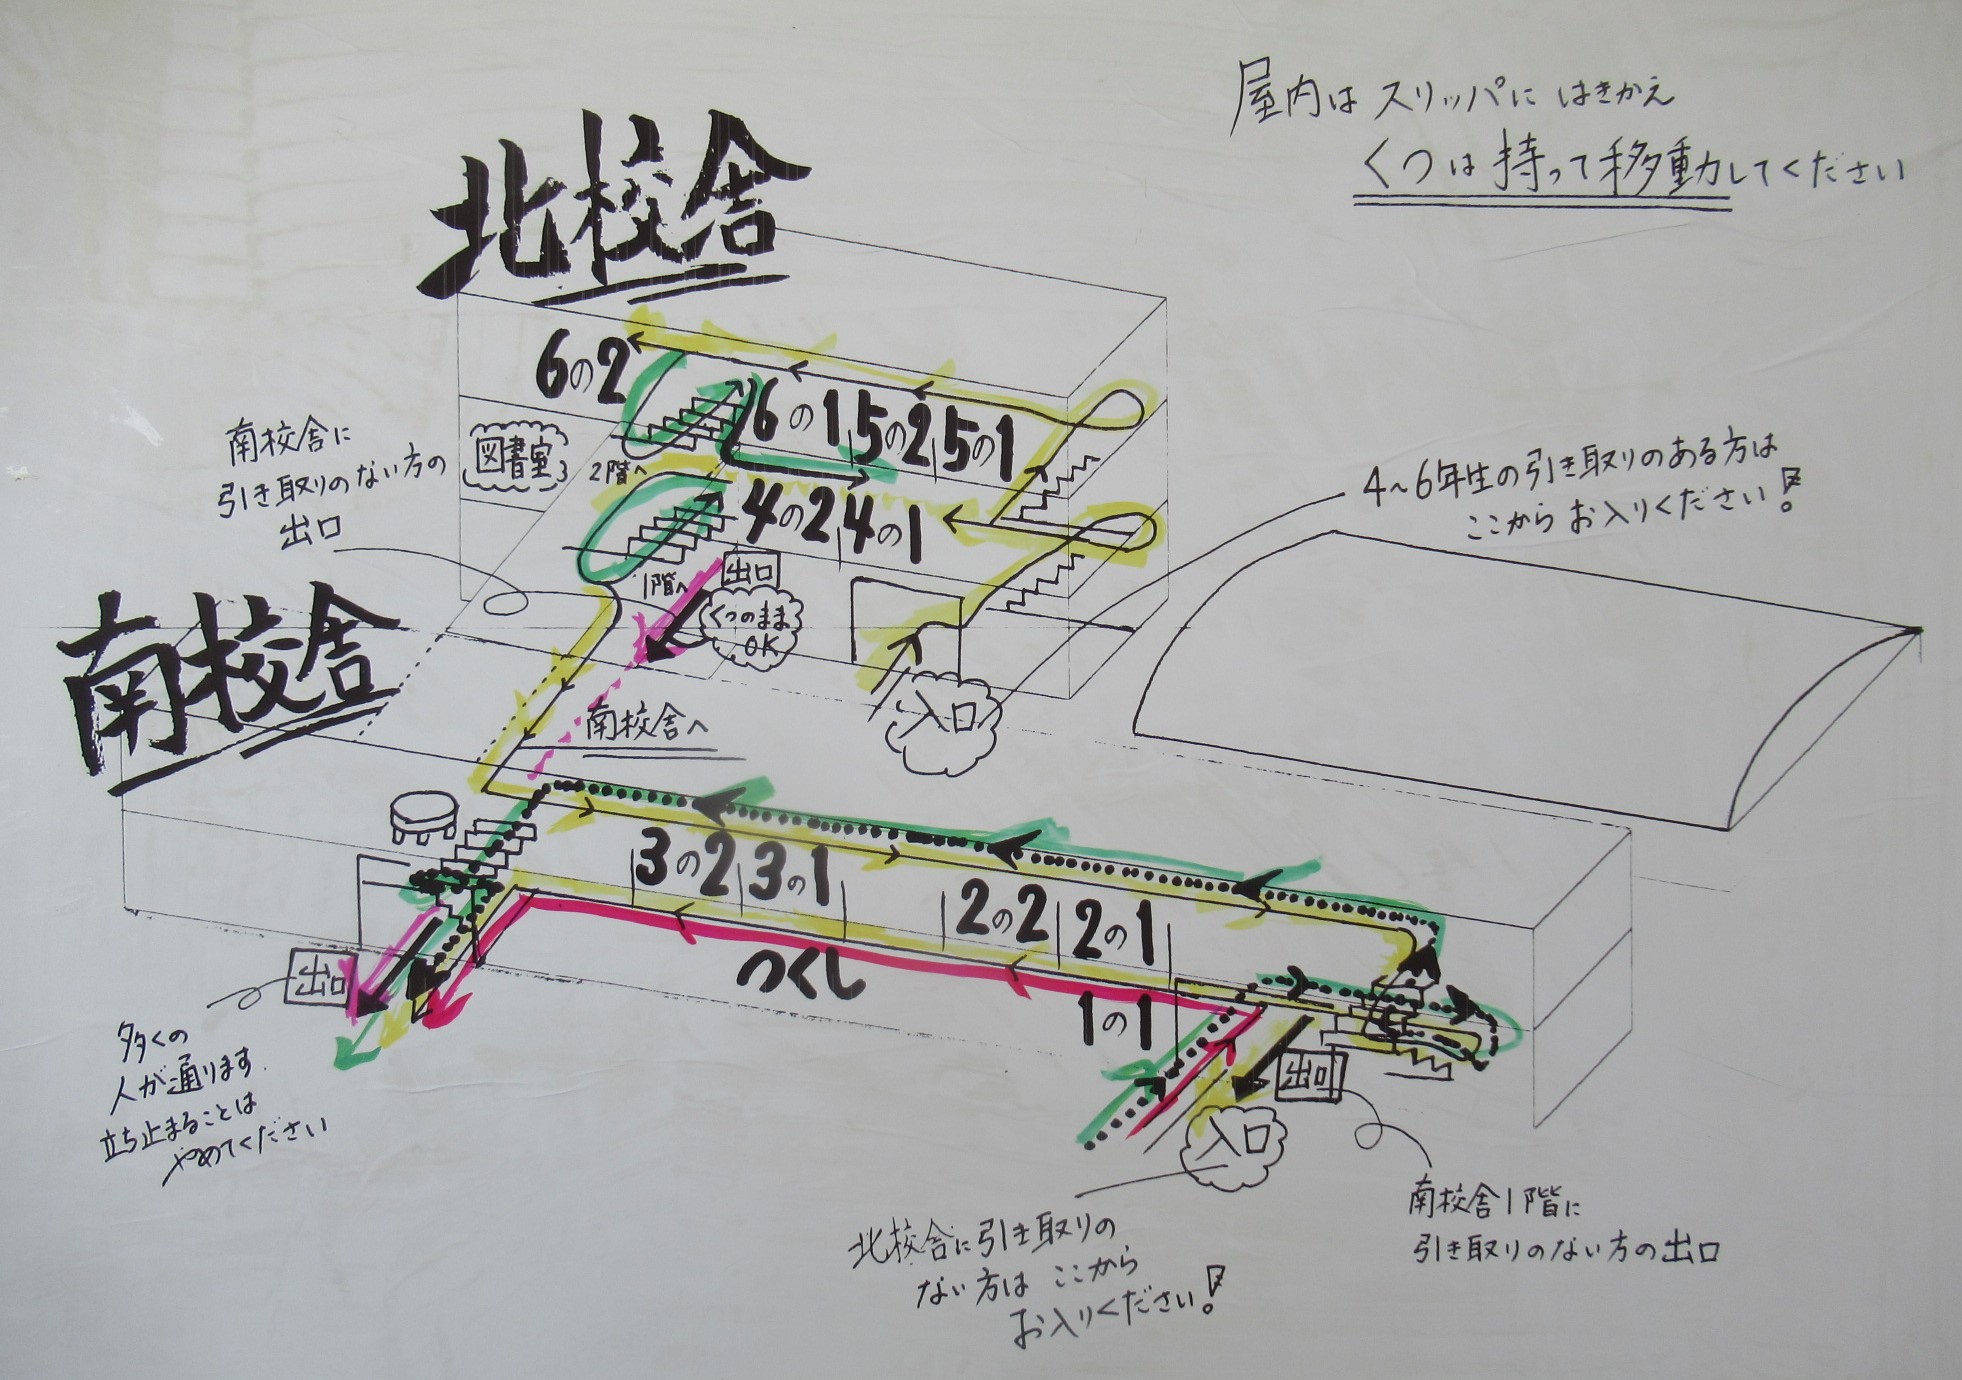 屋内は スリッパに はきかえ
くつは持って移動してください
北校舎
6の2
6の1
5の2
5の1
図書室
2階へ
4の2
4の1
南校舎に
引き取りのない方の
出口
4~6年生の引き取りのある方は
ここから お入りください!
1階へ
出口
くつのまま
OK
入口
南校舎
南校舎へ
3の2
3の1
2の2
2の1
つくし
1の1
出口
多くの
人が通ります
立ち止まることは
やめてください
出口
入口
南校舎1階に
引き取りのない方の出口
北校舎に引き取りの
ない方は ここから
お入りください!